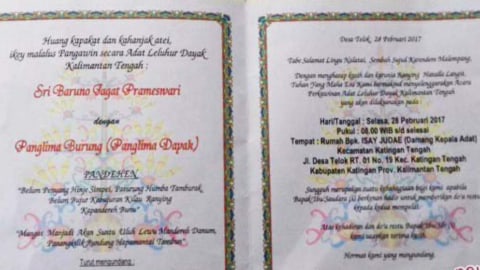 Huang kapakat dan kahanjak atei,
ikey malalus Pangawin secara Adat Leluhur Dayak
Kalimantan Tengah :
Sri Baruno Jagat Prameswari
dengan
Panglima Burung (Panglima Dapak)
PANDEHEN
"Belum Penyang Hinje Simpei, Paturung Humba Tamburak
Belum Bujur Kabujuran Kilau Ranying
Kapandereh Bunu"
"Mangat Manjadi Akan Suntu Uluh Lewu Danum,
Panangkilik Rundung Hapamantai Tambun"
Turut mengundang :
Desa Telok, 28 Pebruari 2017
Tabe Salamat Lingu Nalatai, Sembah Sujud Karendem Malempang.
Dengan mengharap kasih dan karunia Ranying Hatalla Langit,
Tuhan Yang Maha Esa Kami bermaksud menyelenggarakan Acara
Perkawinan Adat Leluhur Dayak Kalimantan Tengah
yang akan dilaksanakan pada :
Hari/Tanggal : Selasa, 28 Pebruari 2017
Pukul : 08.00 WIB s/d selesai
Tempat : Rumah Bpk. ISAY JUDAE (Damang Kepala Adat)
Kecamatan Katingan Tengah
Jl. Desa Telok RT. 01 No. 19 Kec. Katingan Tengah
Kabupaten Katingan Prov. Kalimantan Tengah
Sungguh merupakan suatu kebahagiaan bagi kami apabila
Bapak/Ibu/Saudara (i) berkenan hadir untuk memberikan do'a restu
kepada kedua mempelai.
Atas kehadiran dan do'a restu Bapak/Ibu/Sdr (i)
kami ucapkan terima kasih.
Hormat kami yang mengundang,